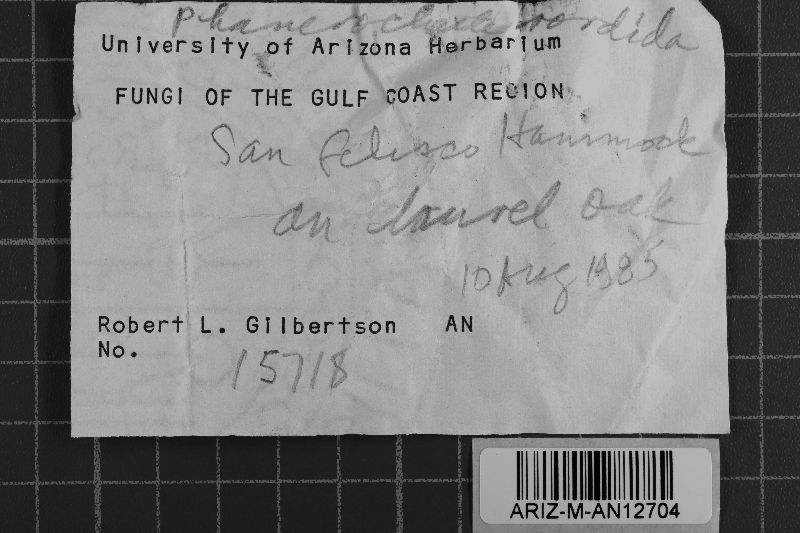 Phanerochaete sordida
University of Arizona Herbarium
FUNGI OF THE GULF COAST REGION
San Felasco Hammock
on laurel oak
10 Aug 1985
Robert L. Gilbertson AN
No. 15718
ARIZ-M-AN12704